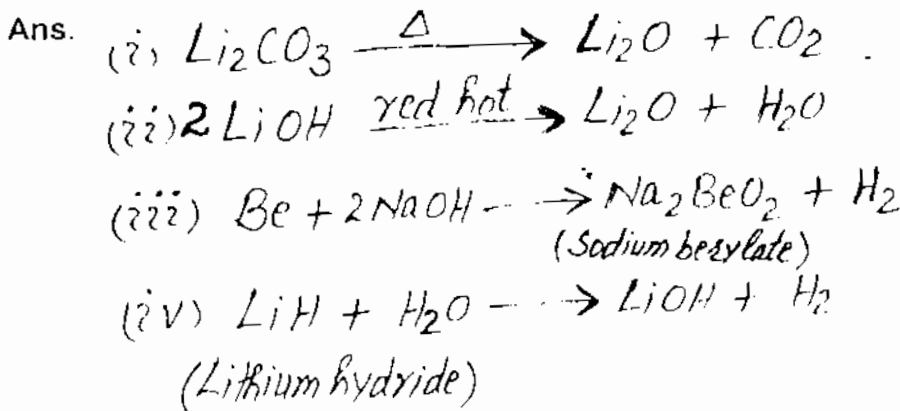 Ans. (i) Li₂CO₃ —Δ→ Li₂O + CO₂ .
(ii) 2 LiOH —red hot→ Li₂O + H₂O
(iii) Be + 2NaOH --→ Na₂BeO₂ + H₂
(Sodium berylate)
(iv) LiH + H₂O --→ LiOH + H₂
(Lithium hydride)